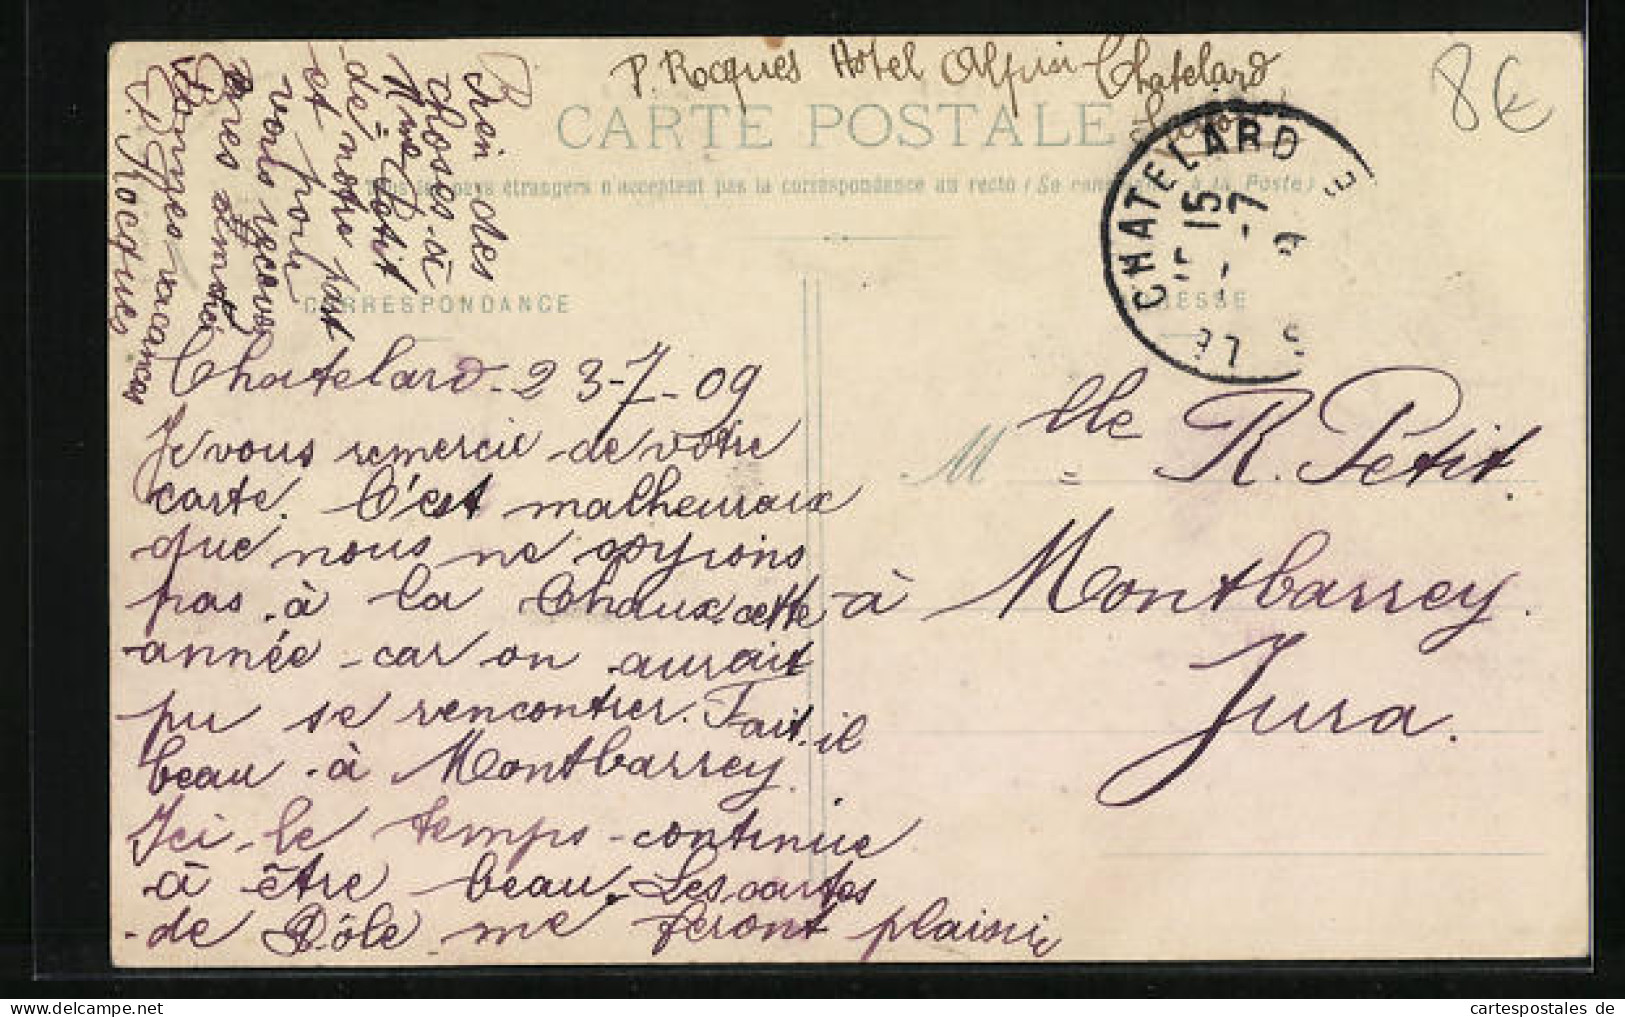 P. Rocques Hôtel Alpin Chatelard
8€
CARTE POSTALE
Tous les pays étrangers n'acceptent pas la correspondance au recto (Se à la Poste)
CHATELARD
LE
15
15 -7
9
CORRESPONDANCE
RESSE
Chatelard - 23-7-09
Je vous remercie de votre
carte. C'est malheureux
que nous ne soyions
pas à la Chaux cette
année car on aurait
pu se rencontrer. Fait-il
beau à Montbarrey.
Ici le temps continue
à être beau. Les cartes
de Dôle me feront plaisir
Bien des
choses à
Mme Petit
de
et notre part
pour
vous recevez
mes amitiés
Bonnes vacances
P. Rocques
Mlle R. Petit.
à Montbarrey.
Jura.
cartespostales de